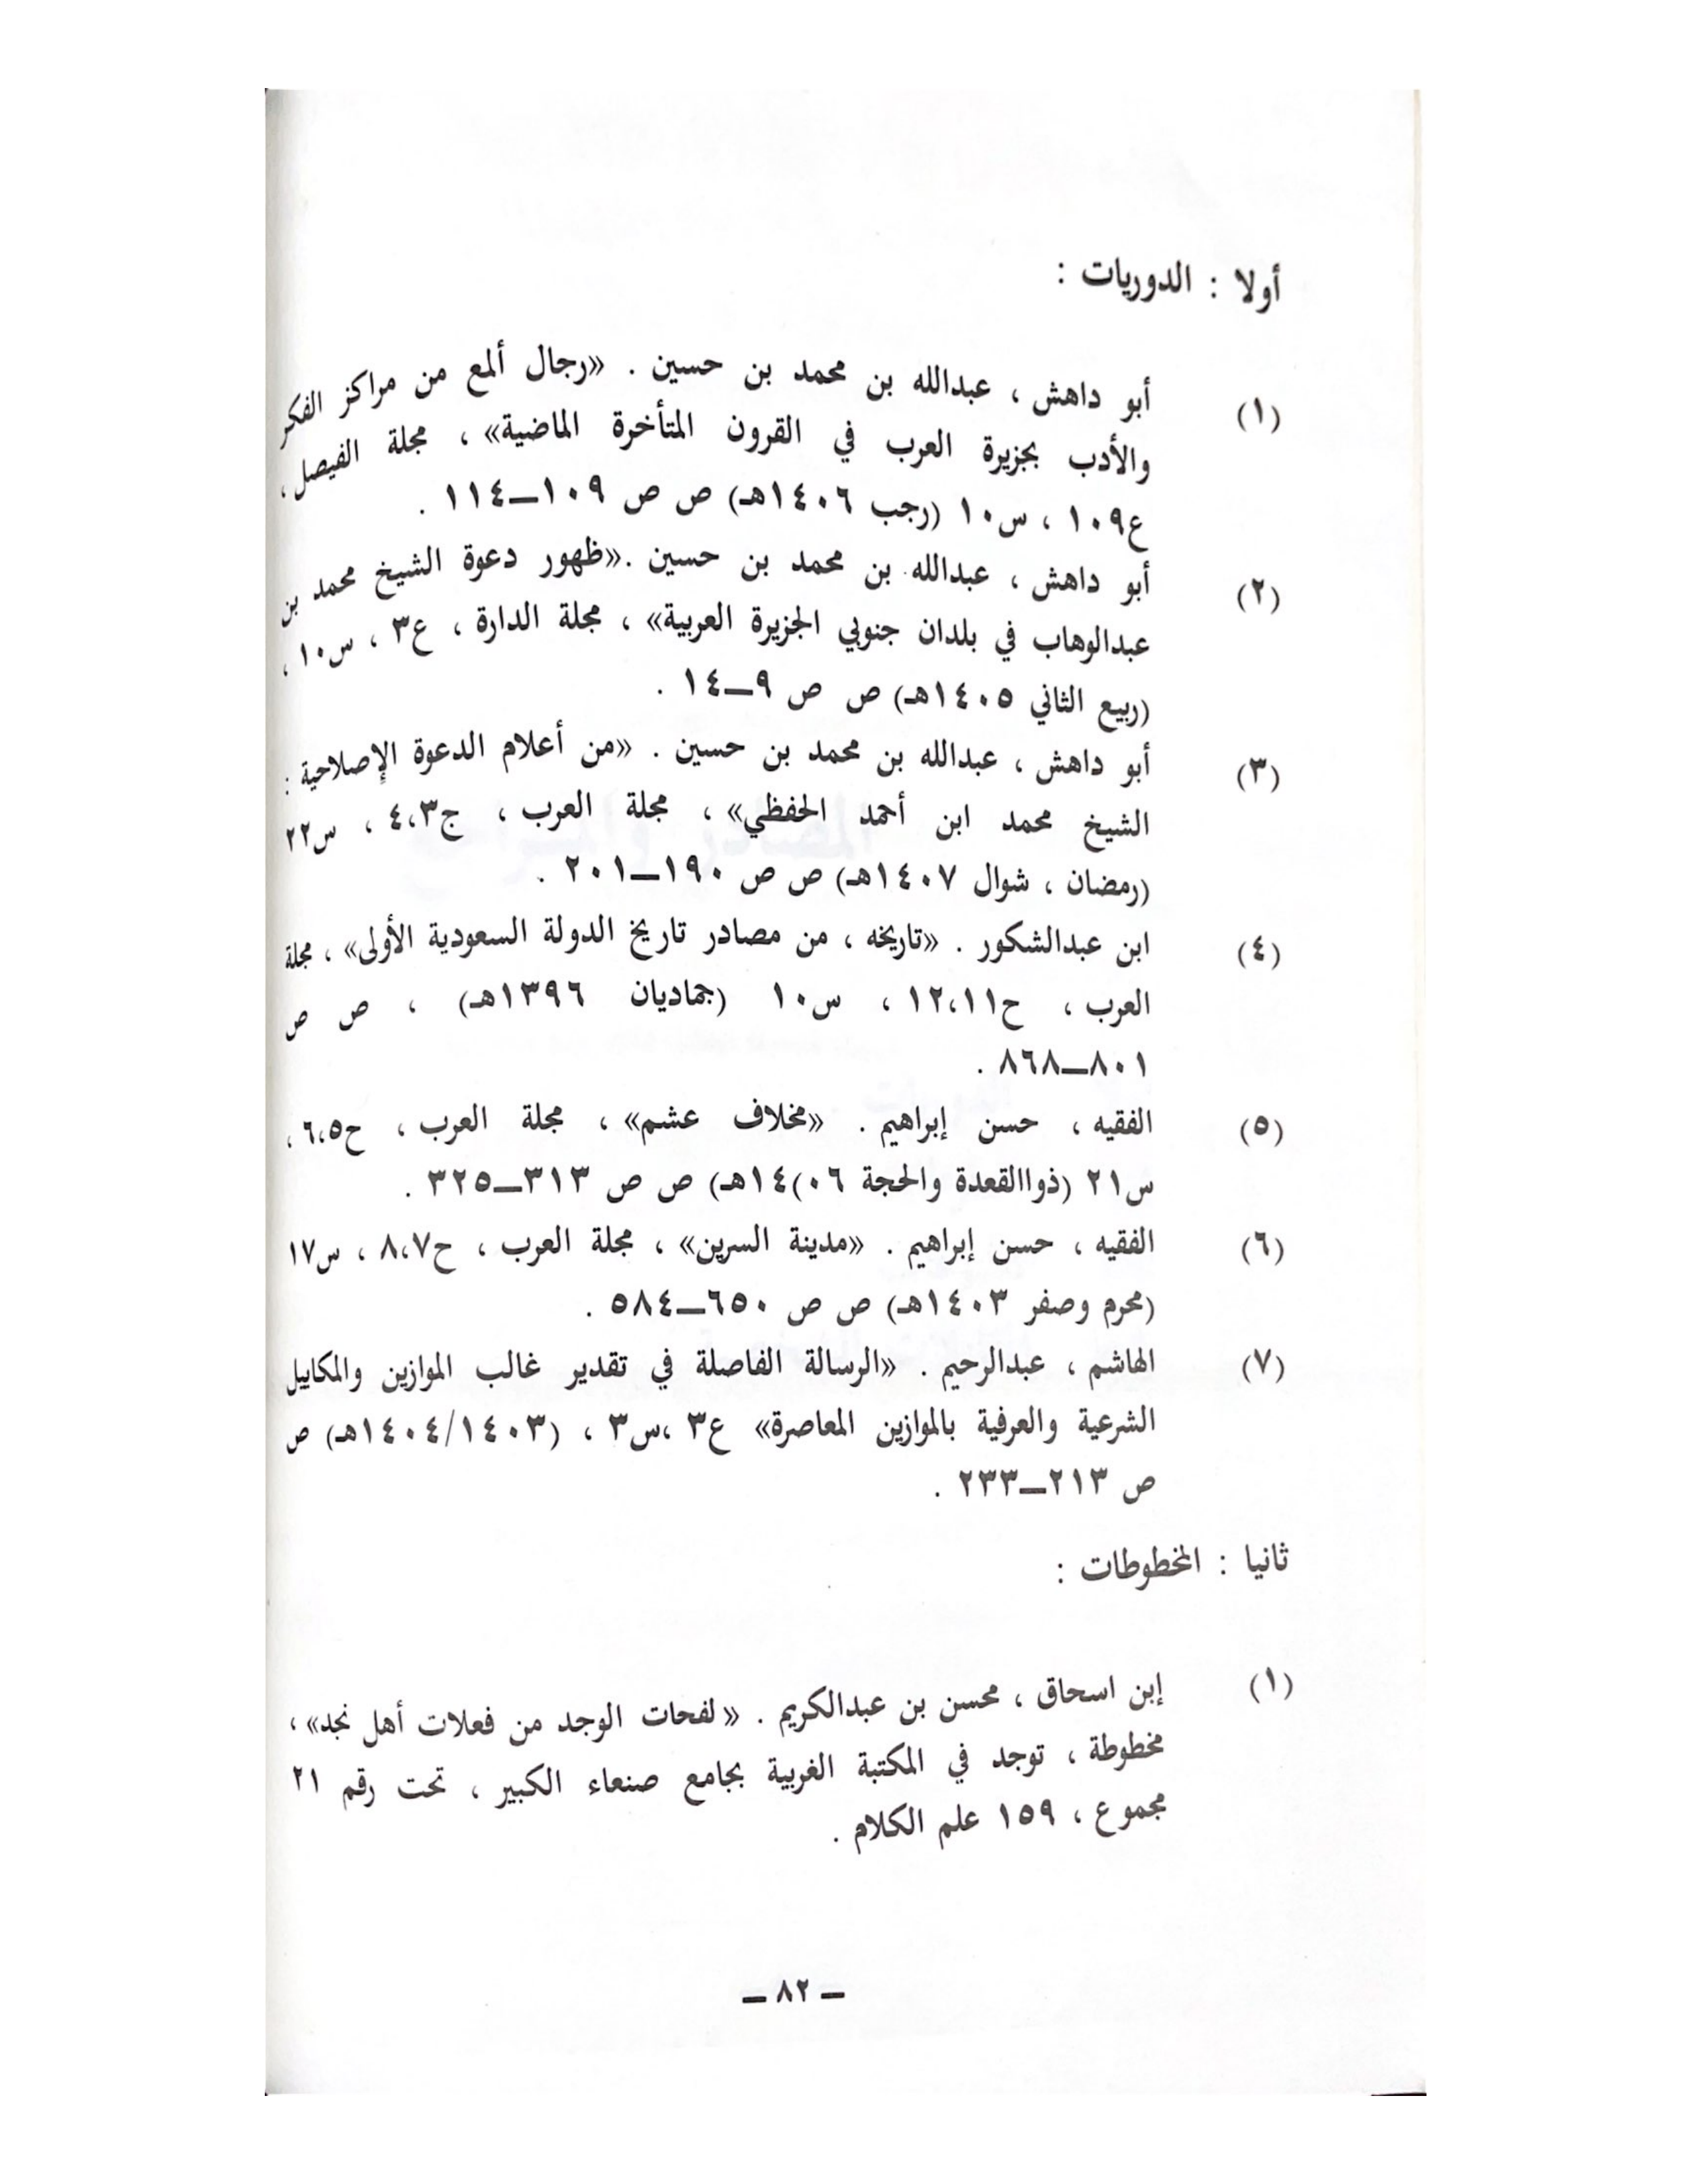 أولا : الدوريات :
(١) أبو داهش ، عبدالله بن محمد بن حسين . «رجال ألمع من مراكز الفكر
والأدب بجزيرة العرب في القرون المتأخرة الماضية» ، مجلة الفيصل ،
ع١٠٩ ، س١٠ (رجب ١٤٠٦هـ) ص ص ١٠٩ــ١١٤ .
(٢) أبو داهش ، عبدالله بن محمد بن حسين .«ظهور دعوة الشيخ محمد بن
عبدالوهاب في بلدان جنوبي الجزيرة العربية» ، مجلة الدارة ، ع٣ ، س١٠ ،
(ربيع الثاني ١٤٠٥هـ) ص ص ٩ــ١٤ .
(٣) أبو داهش ، عبدالله بن محمد بن حسين . «من أعلام الدعوة الإصلاحية :
الشيخ محمد ابن أحمد الحفظي» ، مجلة العرب ، ج٤،٣ ، س٢٢
(رمضان ، شوال ١٤٠٧هـ) ص ص ١٩٠ــ٢٠١ .
(٤) ابن عبدالشكور . «تاريخه ، من مصادر تاريخ الدولة السعودية الأولى» ، مجلة
العرب ، ح١٢،١١ ، س١٠ (جماديان ١٣٩٦هـ) ، ص ص
٨٠١ــ٨٦٨ .
(٥) الفقيه ، حسن إبراهيم . «مخلاف عشم» ، مجلة العرب ، ح٦،٥ ،
س٢١ (ذواالقعدة والحجة ٠٦)١٤هـ) ص ص ٣١٣ــ٣٢٥ .
(٦) الفقيه ، حسن إبراهيم . «مدينة السرين» ، مجلة العرب ، ح٨،٧ ، س١٧
(محرم وصفر ١٤٠٣هـ) ص ص ٦٥٠ــ٥٨٤ .
(٧) الهاشم ، عبدالرحيم . «الرسالة الفاصلة في تقدير غالب الموازين والمكاييل
الشرعية والعرفية بالموازين المعاصرة» ع٣ ،س٣ ، (١٤٠٤/١٤٠٣هـ) ص
ص ٢١٣ــ٢٣٣ .
ثانيا : المخطوطات :
(١) إبن اسحاق ، محسن بن عبدالكريم . «لفحات الوجد من فعلات أهل نجد» ،
مخطوطة ، توجد في المكتبة الغربية بجامع صنعاء الكبير ، تحت رقم ٢١
مجموع ، ١٥٩ علم الكلام .
ــ ٨٢ ــ